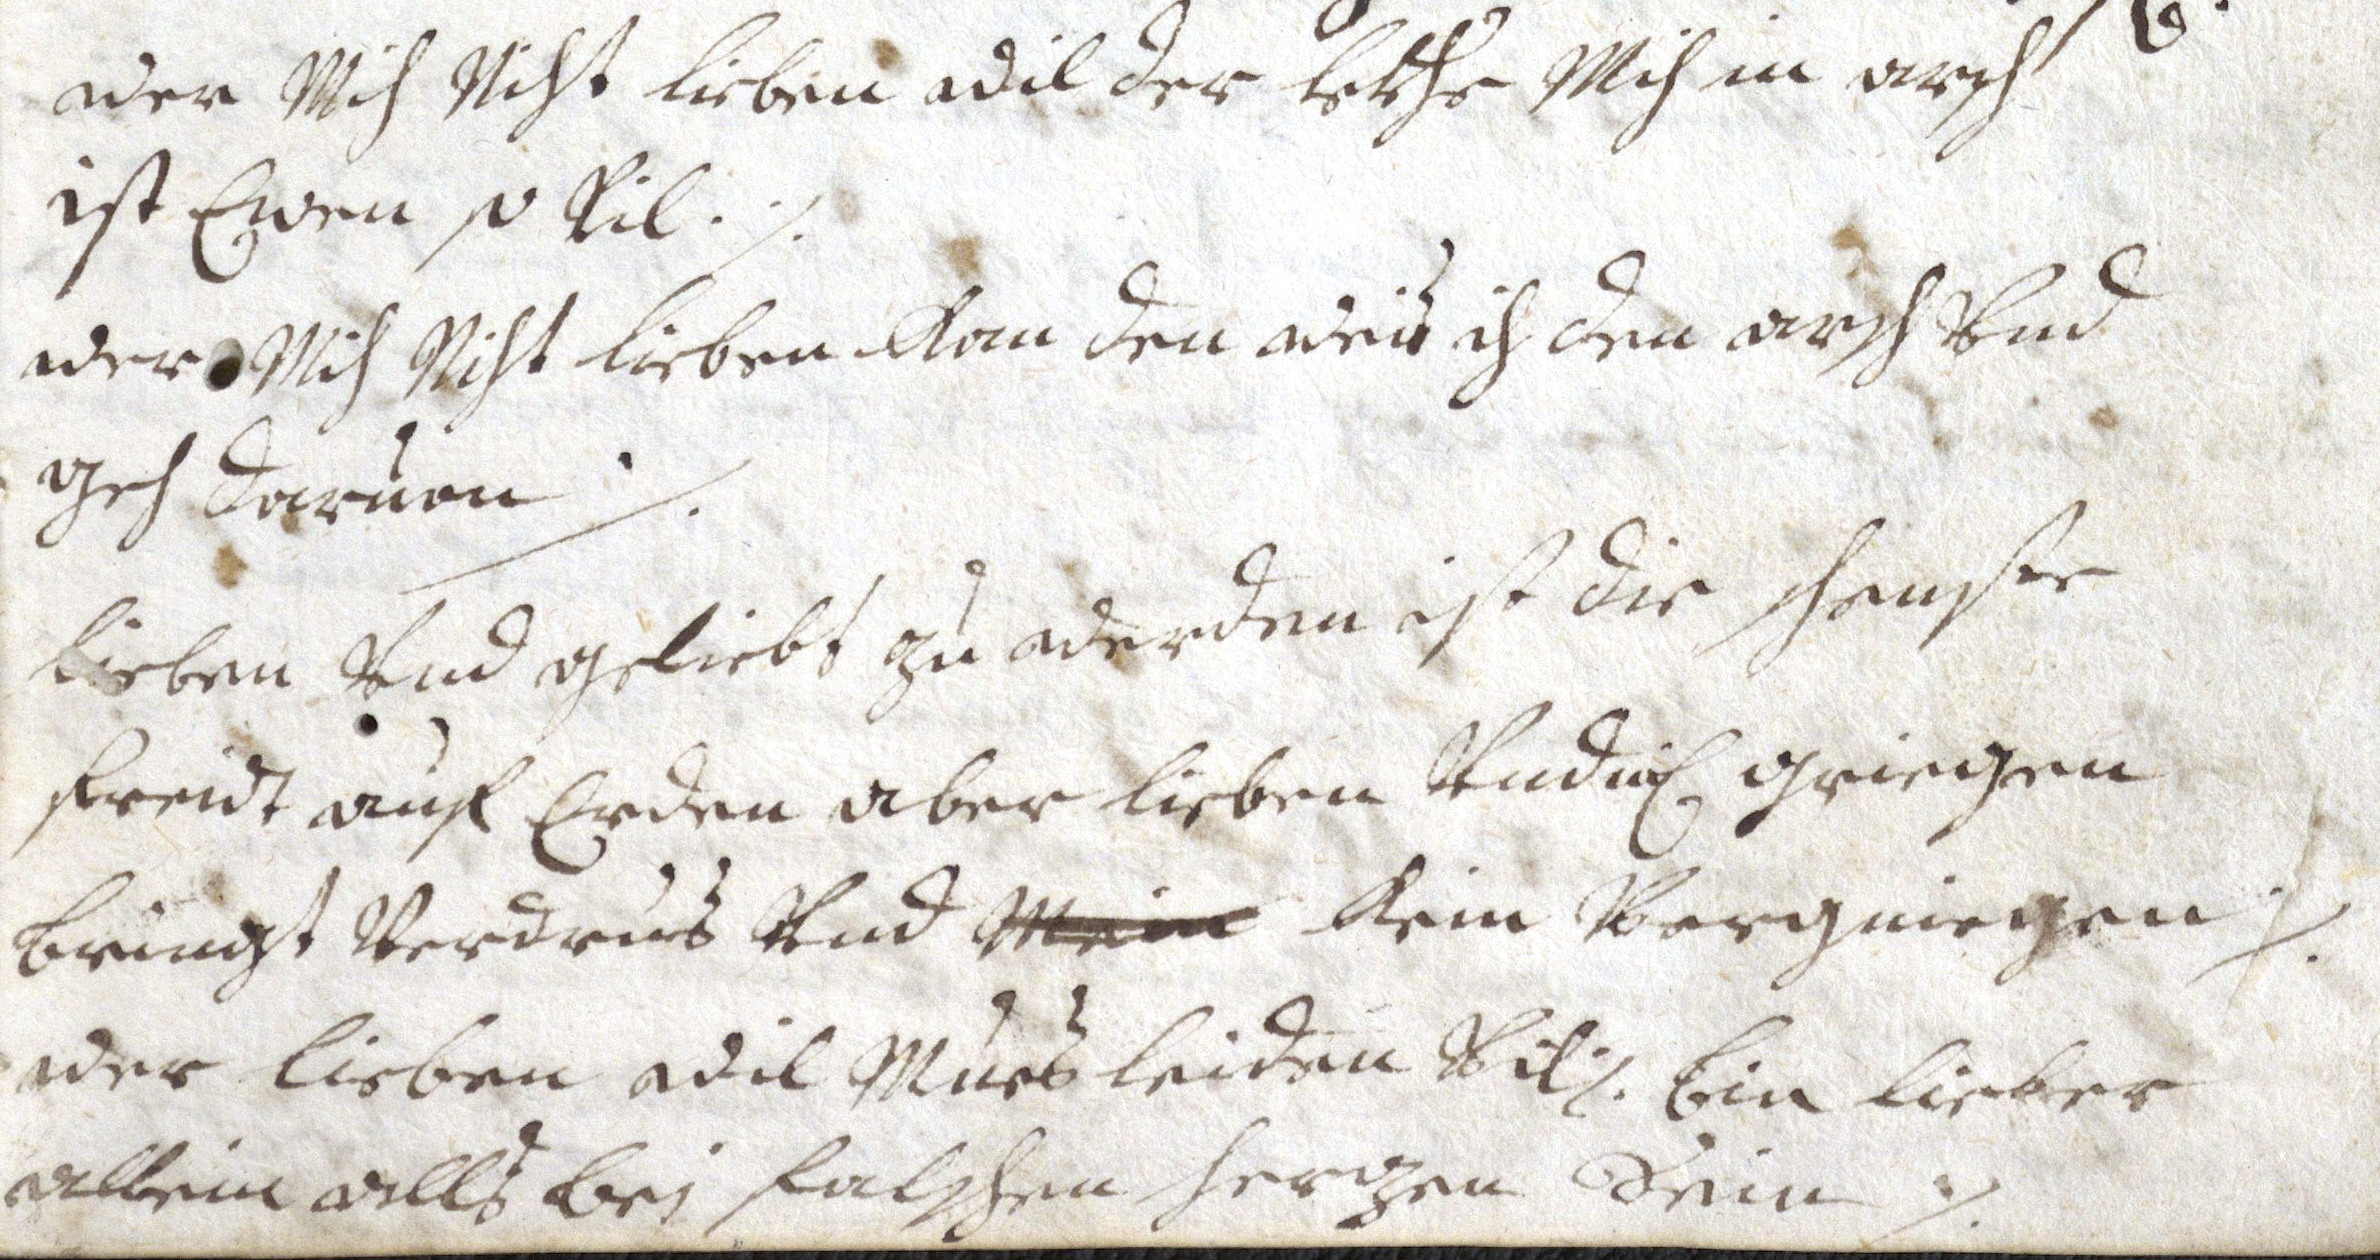 wer Mich Nicht lieben wil der lekhe Mich in arsch
ist Ewen so Vil ./.
wer Mich Nicht lieben Kan den weis ich den arsch Vnd
geh daruon ./.
lieben Vnd geliebt zu werden ist die schenste
freidt auf Erden aber lieben Vnd nit griegen
bringt Verdrus Vnd Mein Kein Vergniegen ./.
wer lieben wil Mus leiden Vil ./. bin lieber
allein alls bej falschen herzen Sein ./.